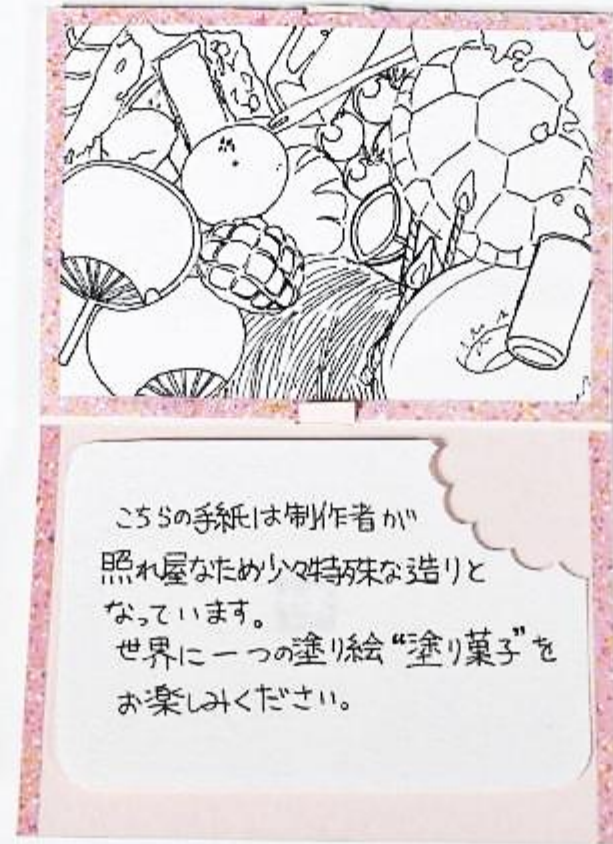 こちらの手紙は制作者が
照れ屋なため少々特殊な造りと
なっています。
世界に一つの塗り絵“塗り菓子”を
お楽しみください。